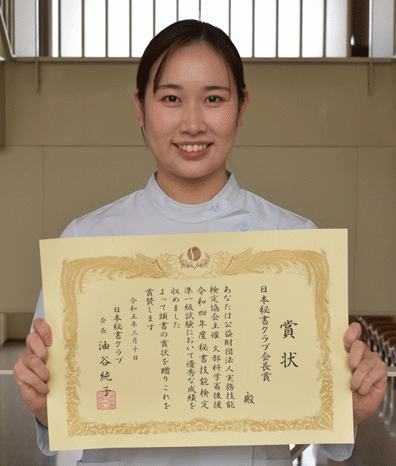 賞状
日本秘書クラブ会長賞
殿
あなたは公益財団法人実務技能
検定協会主催 文部科学省後援
令和四年度秘書技能検定
準一級試験において優秀な成績を
収めました
よって頭書の賞状を贈りこれを
賞賛します
令和五年三月十日
日本秘書クラブ
会長 油谷純子